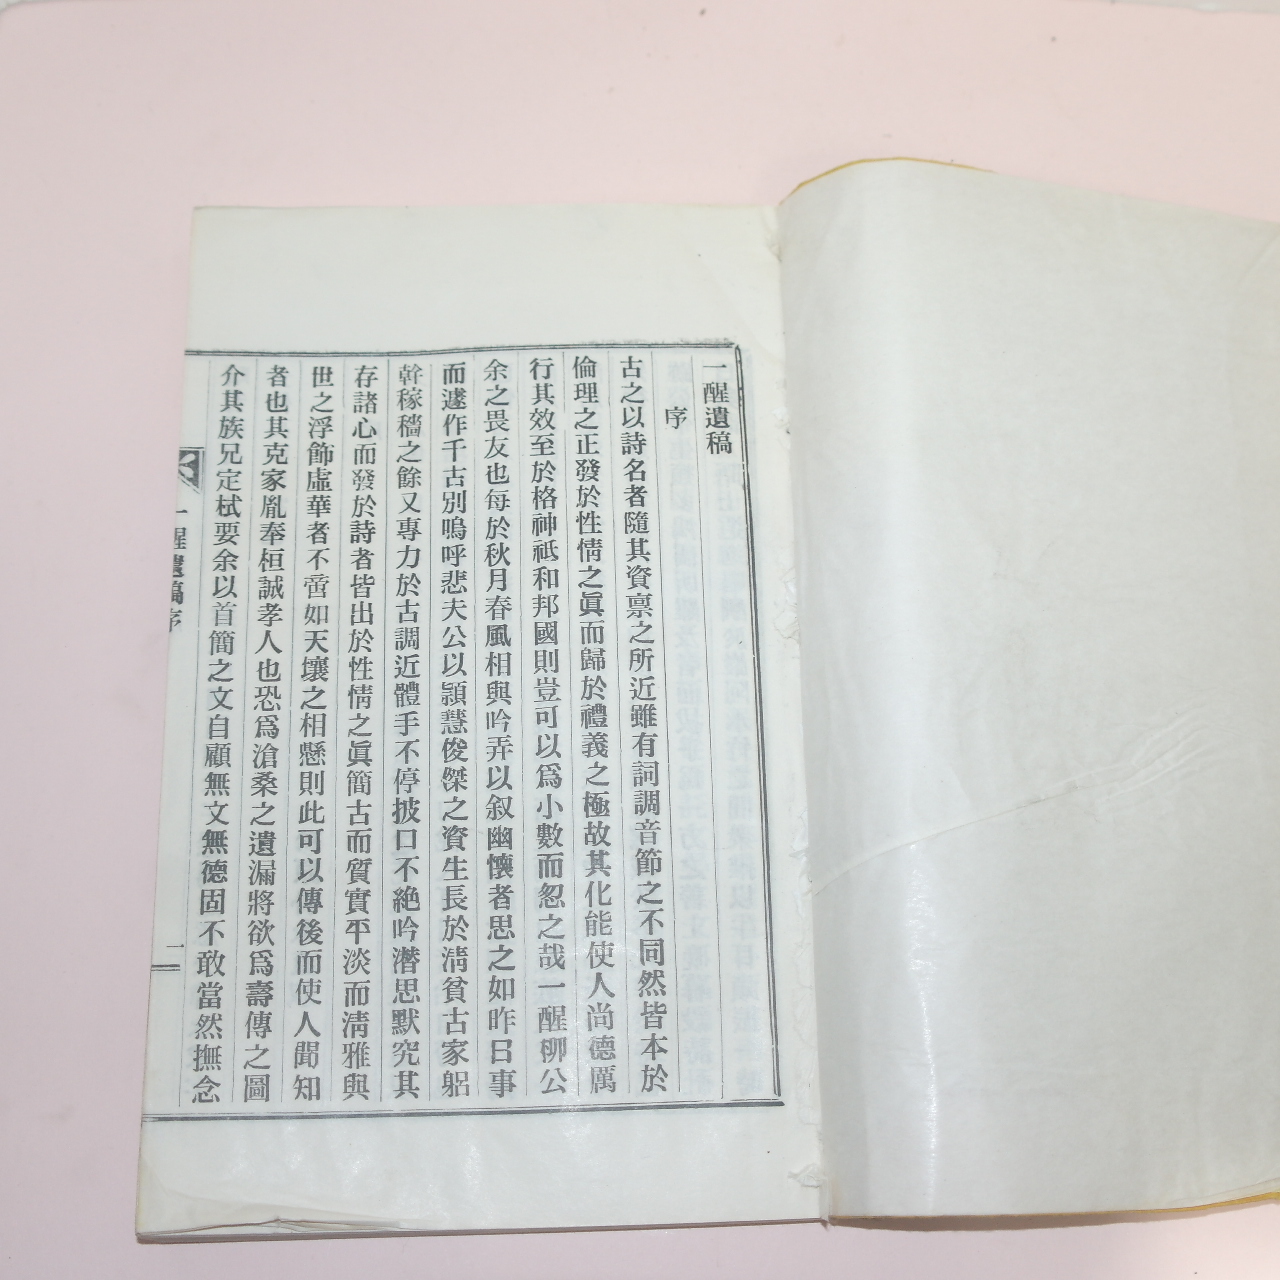 一醒遺稿
序
古之以詩名者隨其資禀之所近雖有詞調音節之不同然皆本於
倫理之正發於性情之眞而歸於禮義之極故其化能使人尚德厲
行其效至於格神祗和邦國則豈可以爲小數而忽之哉一醒柳公
余之畏友也每於秋月春風相與吟弄以叙幽懷者思之如昨日事
而遽作千古別嗚呼悲夫公以頴慧俊傑之資生長於淸貧古家躬
幹稼穡之餘又專力於古調近體手不停披口不絶吟潛思默究其
存諸心而發於詩者皆出於性情之眞簡古而質實平淡而淸雅與
世之浮飾虛華者不啻如天壤之相懸則此可以傳後而使人聞知
者也其克家胤奉桓誠孝人也恐爲滄桑之遺漏將欲爲壽傳之圖
介其族兄定栻要余以首簡之文自顧無文無德固不敢當然撫念
一醒遺稿序
一